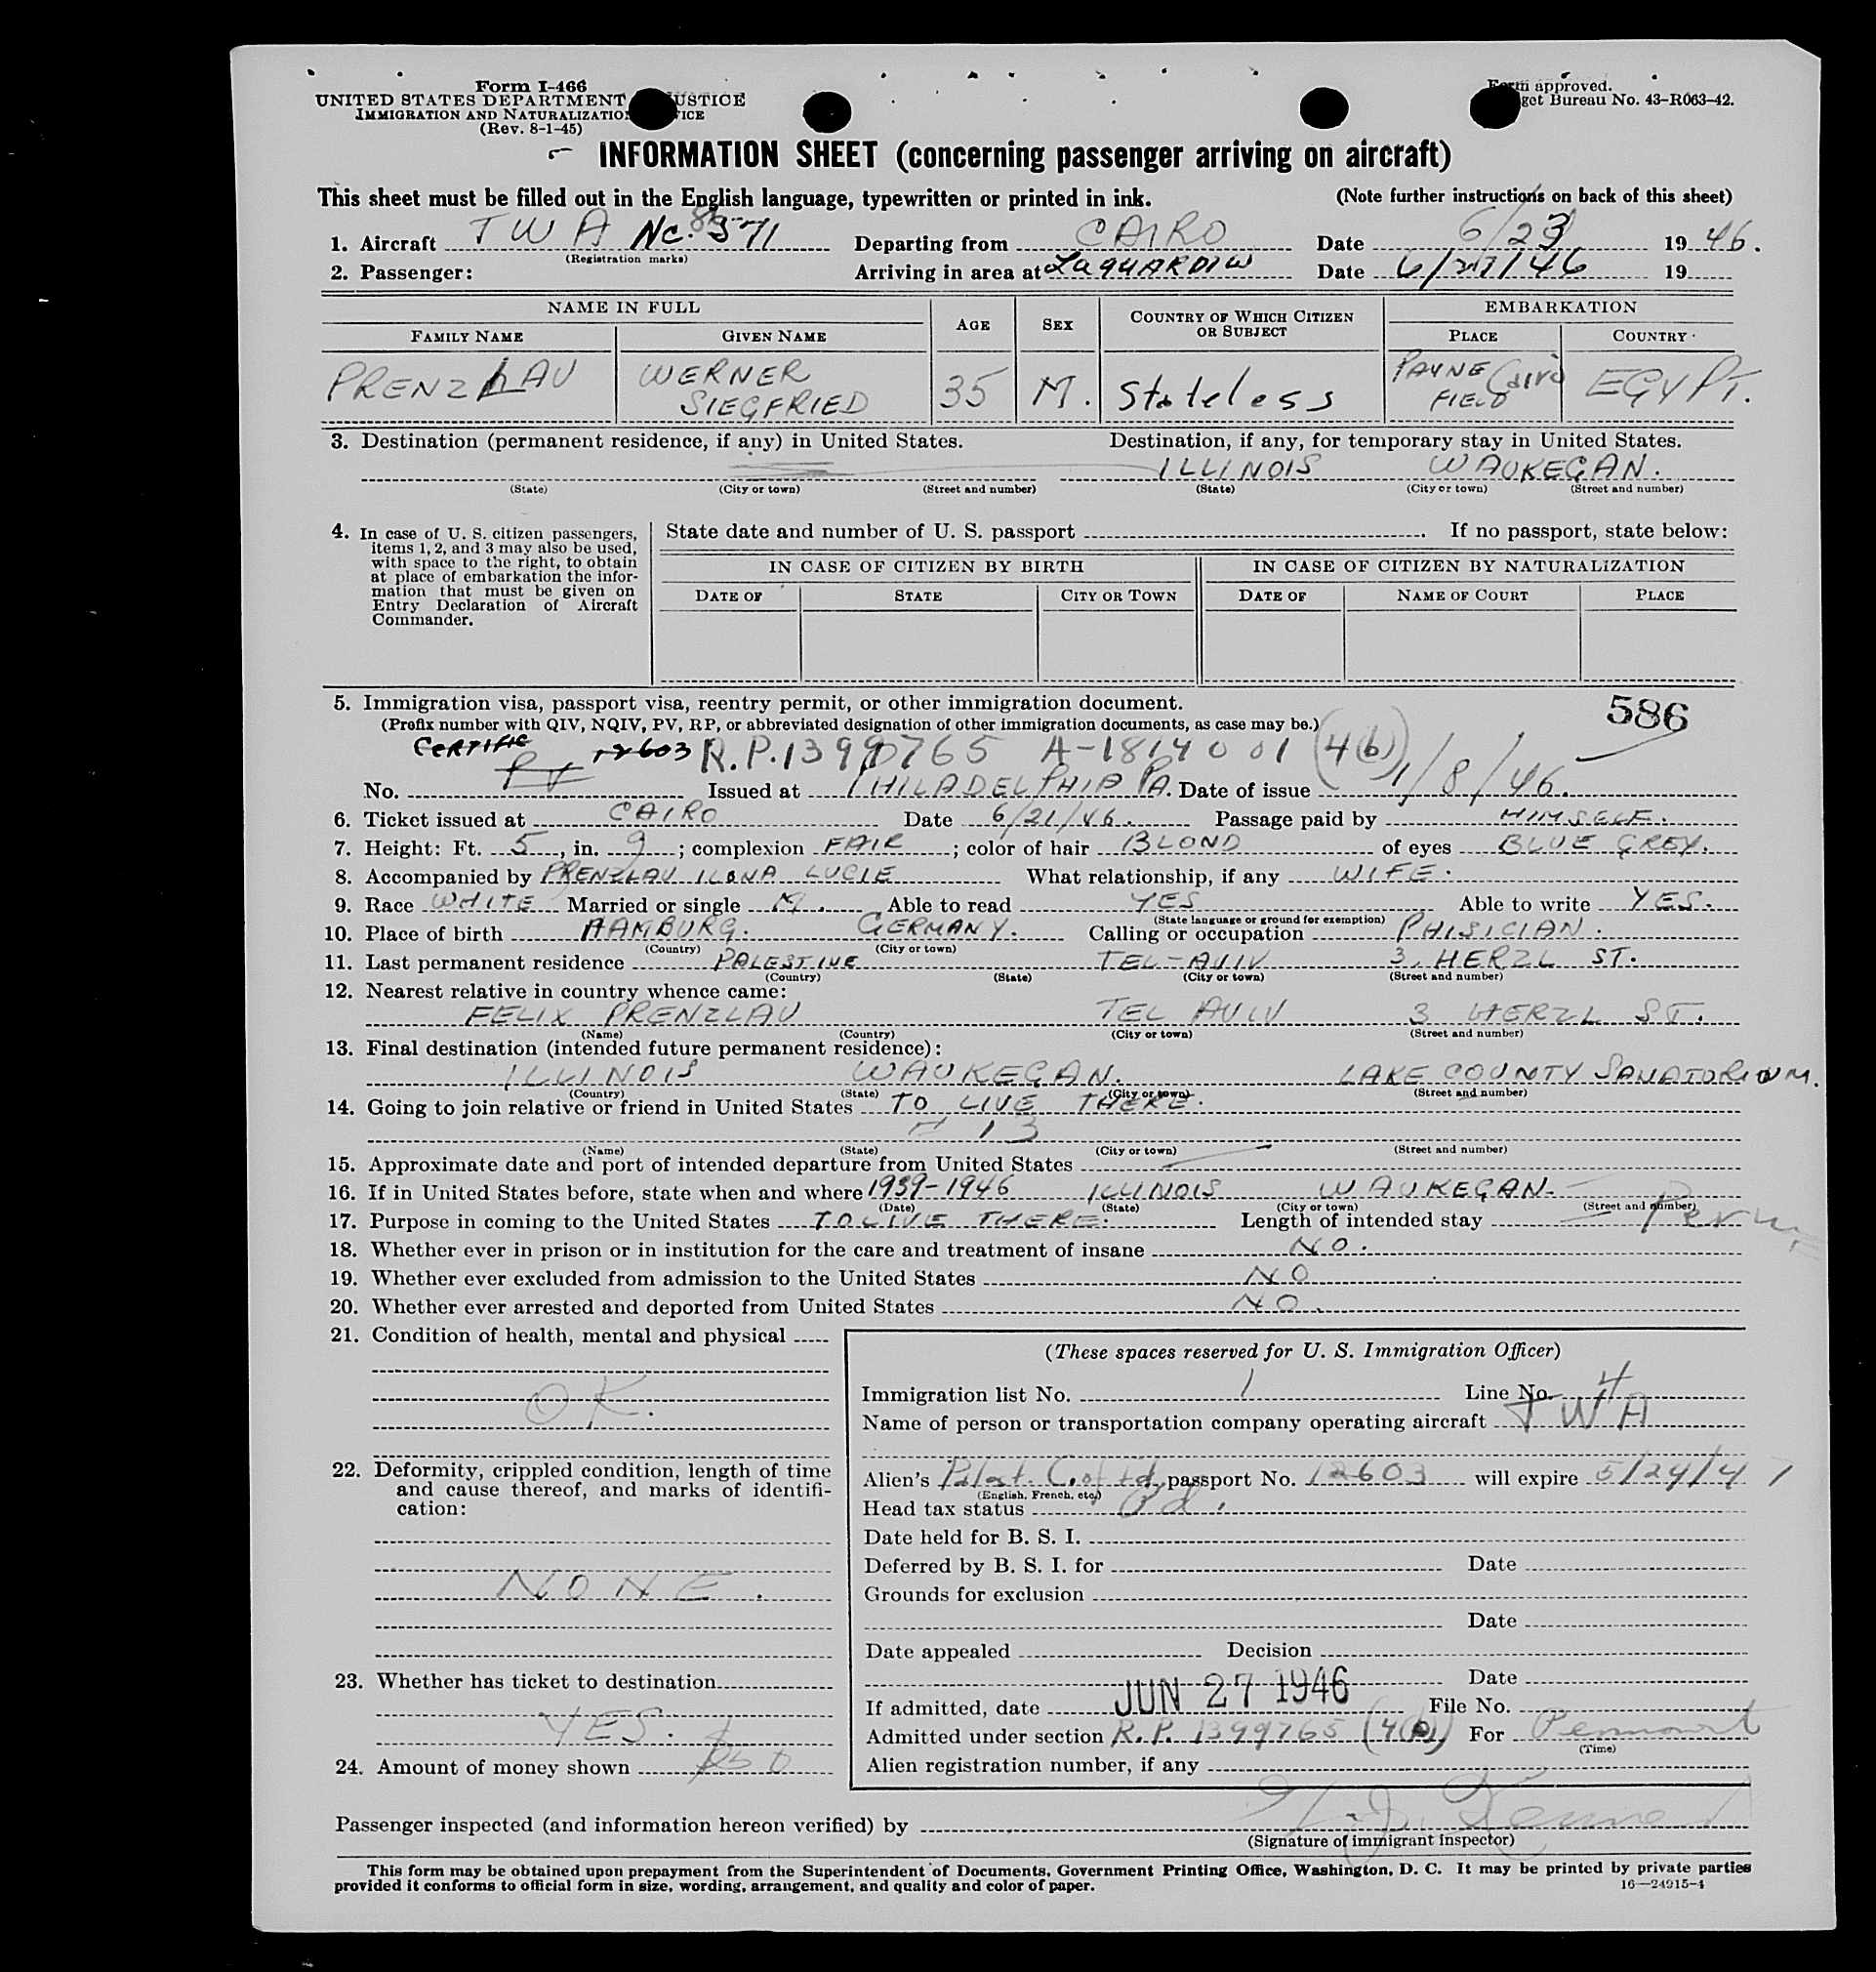 Form I-466
UNITED STATES DEPARTMENT JUSTICE
IMMIGRATION AND NATURALIZATION SERVICE
(Rev. 8-1-45)
Form approved.
Budget Bureau No. 43-R063-42.
INFORMATION SHEET (concerning passenger arriving on aircraft)
This sheet must be filled out in the English language, typewritten or printed in ink. (Note further instructions on back of this sheet)
1. Aircraft TWA Nc. 571 Departing from CAIRO Date 6/23 1946.
(Registration marks)
2. Passenger: Arriving in area at LaGUARDIA Date 6/27/46 19
NAME IN FULL EMBARKATION
FAMILY NAME GIVEN NAME AGE SEX COUNTRY OF WHICH CITIZEN OR SUBJECT PLACE COUNTRY
PRENZLAU WERNER SIEGFRIED 35 M. Stateless PAYNE FIELD Cairo EGYPT.
3. Destination (permanent residence, if any) in United States. Destination, if any, for temporary stay in United States.
ILLINOIS WAUKEGAN.
(State) (City or town) (Street and number) (State) (City or town) (Street and number)
4. In case of U. S. citizen passengers, items 1, 2, and 3 may also be used, with space to the right, to obtain at place of embarkation the information that must be given on Entry Declaration of Aircraft Commander.
State date and number of U. S. passport . If no passport, state below:
IN CASE OF CITIZEN BY BIRTH IN CASE OF CITIZEN BY NATURALIZATION
DATE OF STATE CITY OR TOWN DATE OF NAME OF COURT PLACE
5. Immigration visa, passport visa, reentry permit, or other immigration document. 586
(Prefix number with QIV, NQIV, PV, RP, or abbreviated designation of other immigration documents, as case may be.)
CERTIFIC 12603 R.P. 1399765 (4(b))
PV
No. Issued at PHILADELPHIA PA. Date of issue 1/8/46.
6. Ticket issued at CAIRO Date 6/21/46. Passage paid by HIMSELF.
7. Height: Ft. 5, in. 9; complexion FAIR; color of hair BLOND of eyes BLUE GREY.
8. Accompanied by PRENZLAU ILONA LUCIE What relationship, if any WIFE.
9. Race WHITE Married or single M. Able to read YES Able to write YES.
(State language or ground for exemption)
10. Place of birth HAMBURG. GERMANY. Calling or occupation PHISICIAN.
(Country) (City or town)
11. Last permanent residence PALESTINE TEL-AVIV 3, HERZL ST.
(Country) (State) (City or town) (Street and number)
12. Nearest relative in country whence came:
FELIX PRENZLAU TEL AVIV 3 HERZL ST.
(Name) (Country) (City or town) (Street and number)
13. Final destination (intended future permanent residence):
ILLINOIS WAUKEGAN. LAKE COUNTY SANATORIUM.
(Country) (State) (City or town) (Street and number)
14. Going to join relative or friend in United States TO LIVE THERE.
13
(Name) (State) (City or town) (Street and number)
15. Approximate date and port of intended departure from United States
16. If in United States before, state when and where 1939-1946 ILLINOIS WAUKEGAN.
(Date) (State) (City or town) (Street and number)
17. Purpose in coming to the United States TO LIVE THERE. Length of intended stay Perm
18. Whether ever in prison or in institution for the care and treatment of insane NO.
19. Whether ever excluded from admission to the United States NO
20. Whether ever arrested and deported from United States NO.
21. Condition of health, mental and physical
OK.
22. Deformity, crippled condition, length of time and cause thereof, and marks of identification:
NONE.
23. Whether has ticket to destination
YES.
24. Amount of money shown
(These spaces reserved for U. S. Immigration Officer)
Immigration list No. 1 Line No. 4
Name of person or transportation company operating aircraft TWA
Alien's passport No. 12603 will expire 5/24/47
(English, French, etc.)
Head tax status Pd.
Date held for B. S. I.
Deferred by B. S. I. for Date
Grounds for exclusion
Date
Date appealed Decision
Date
If admitted, date JUN 27 1946 File No.
Admitted under section R.P. 1399765 (4(b)) For Permanent
(Time)
Alien registration number, if any
Passenger inspected (and information hereon verified) by
(Signature of immigrant inspector)
This form may be obtained upon prepayment from the Superintendent of Documents, Government Printing Office, Washington, D. C. It may be printed by private parties
provided it conforms to official form in size, wording, arrangement, and quality and color of paper. 16—24915-4